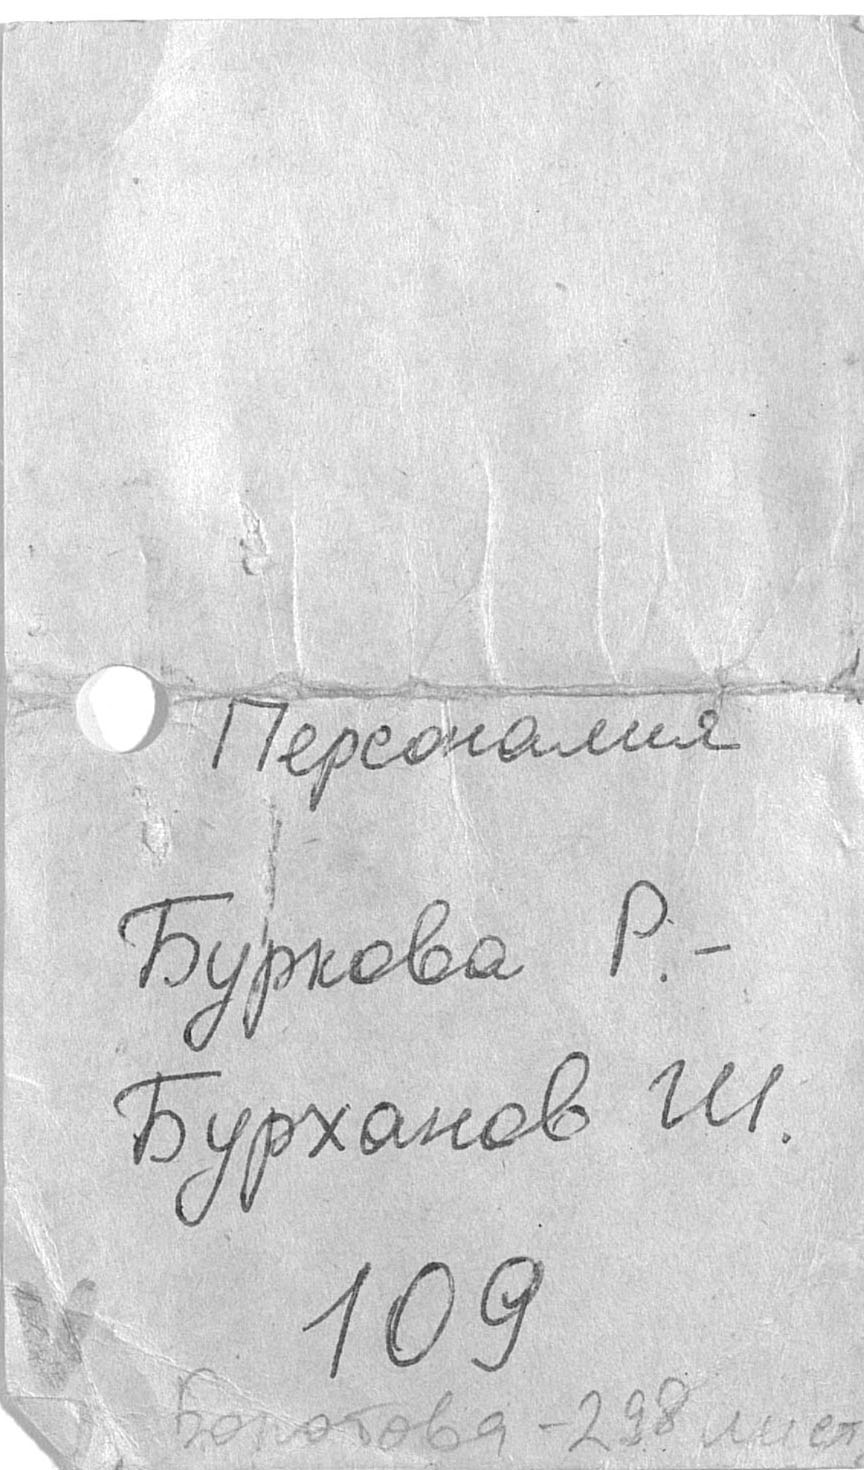 Персоналия
Буркова Р.-
Бурханов Ш.
109
-298 лист